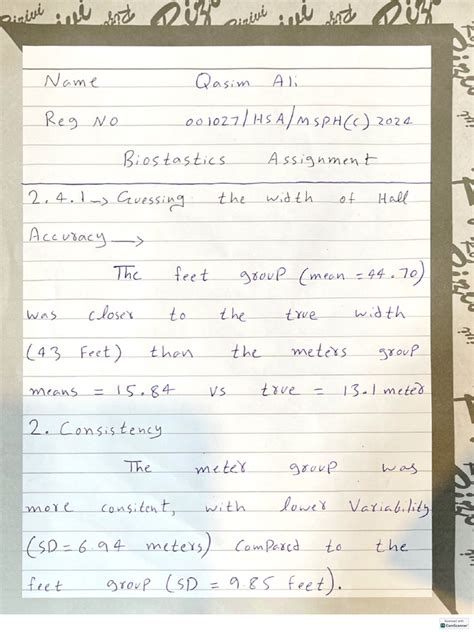 Name Qasim Ali
Reg No 001027/HSA/MSPH(c) 2024
Biostastics Assignment
2.4.1 → Guessing the width of Hall
Accuracy →
The feet group (mean = 44.70)
was closer to the true width
(43 Feet) than the meters group
means = 15.84 vs true = 13.1 meter
2. Consistency
The meter group was
more consitent, with lower Variability
(SD = 6.94 meters) Compared to the
feet group (SD = 9.85 feet).
CamScanner